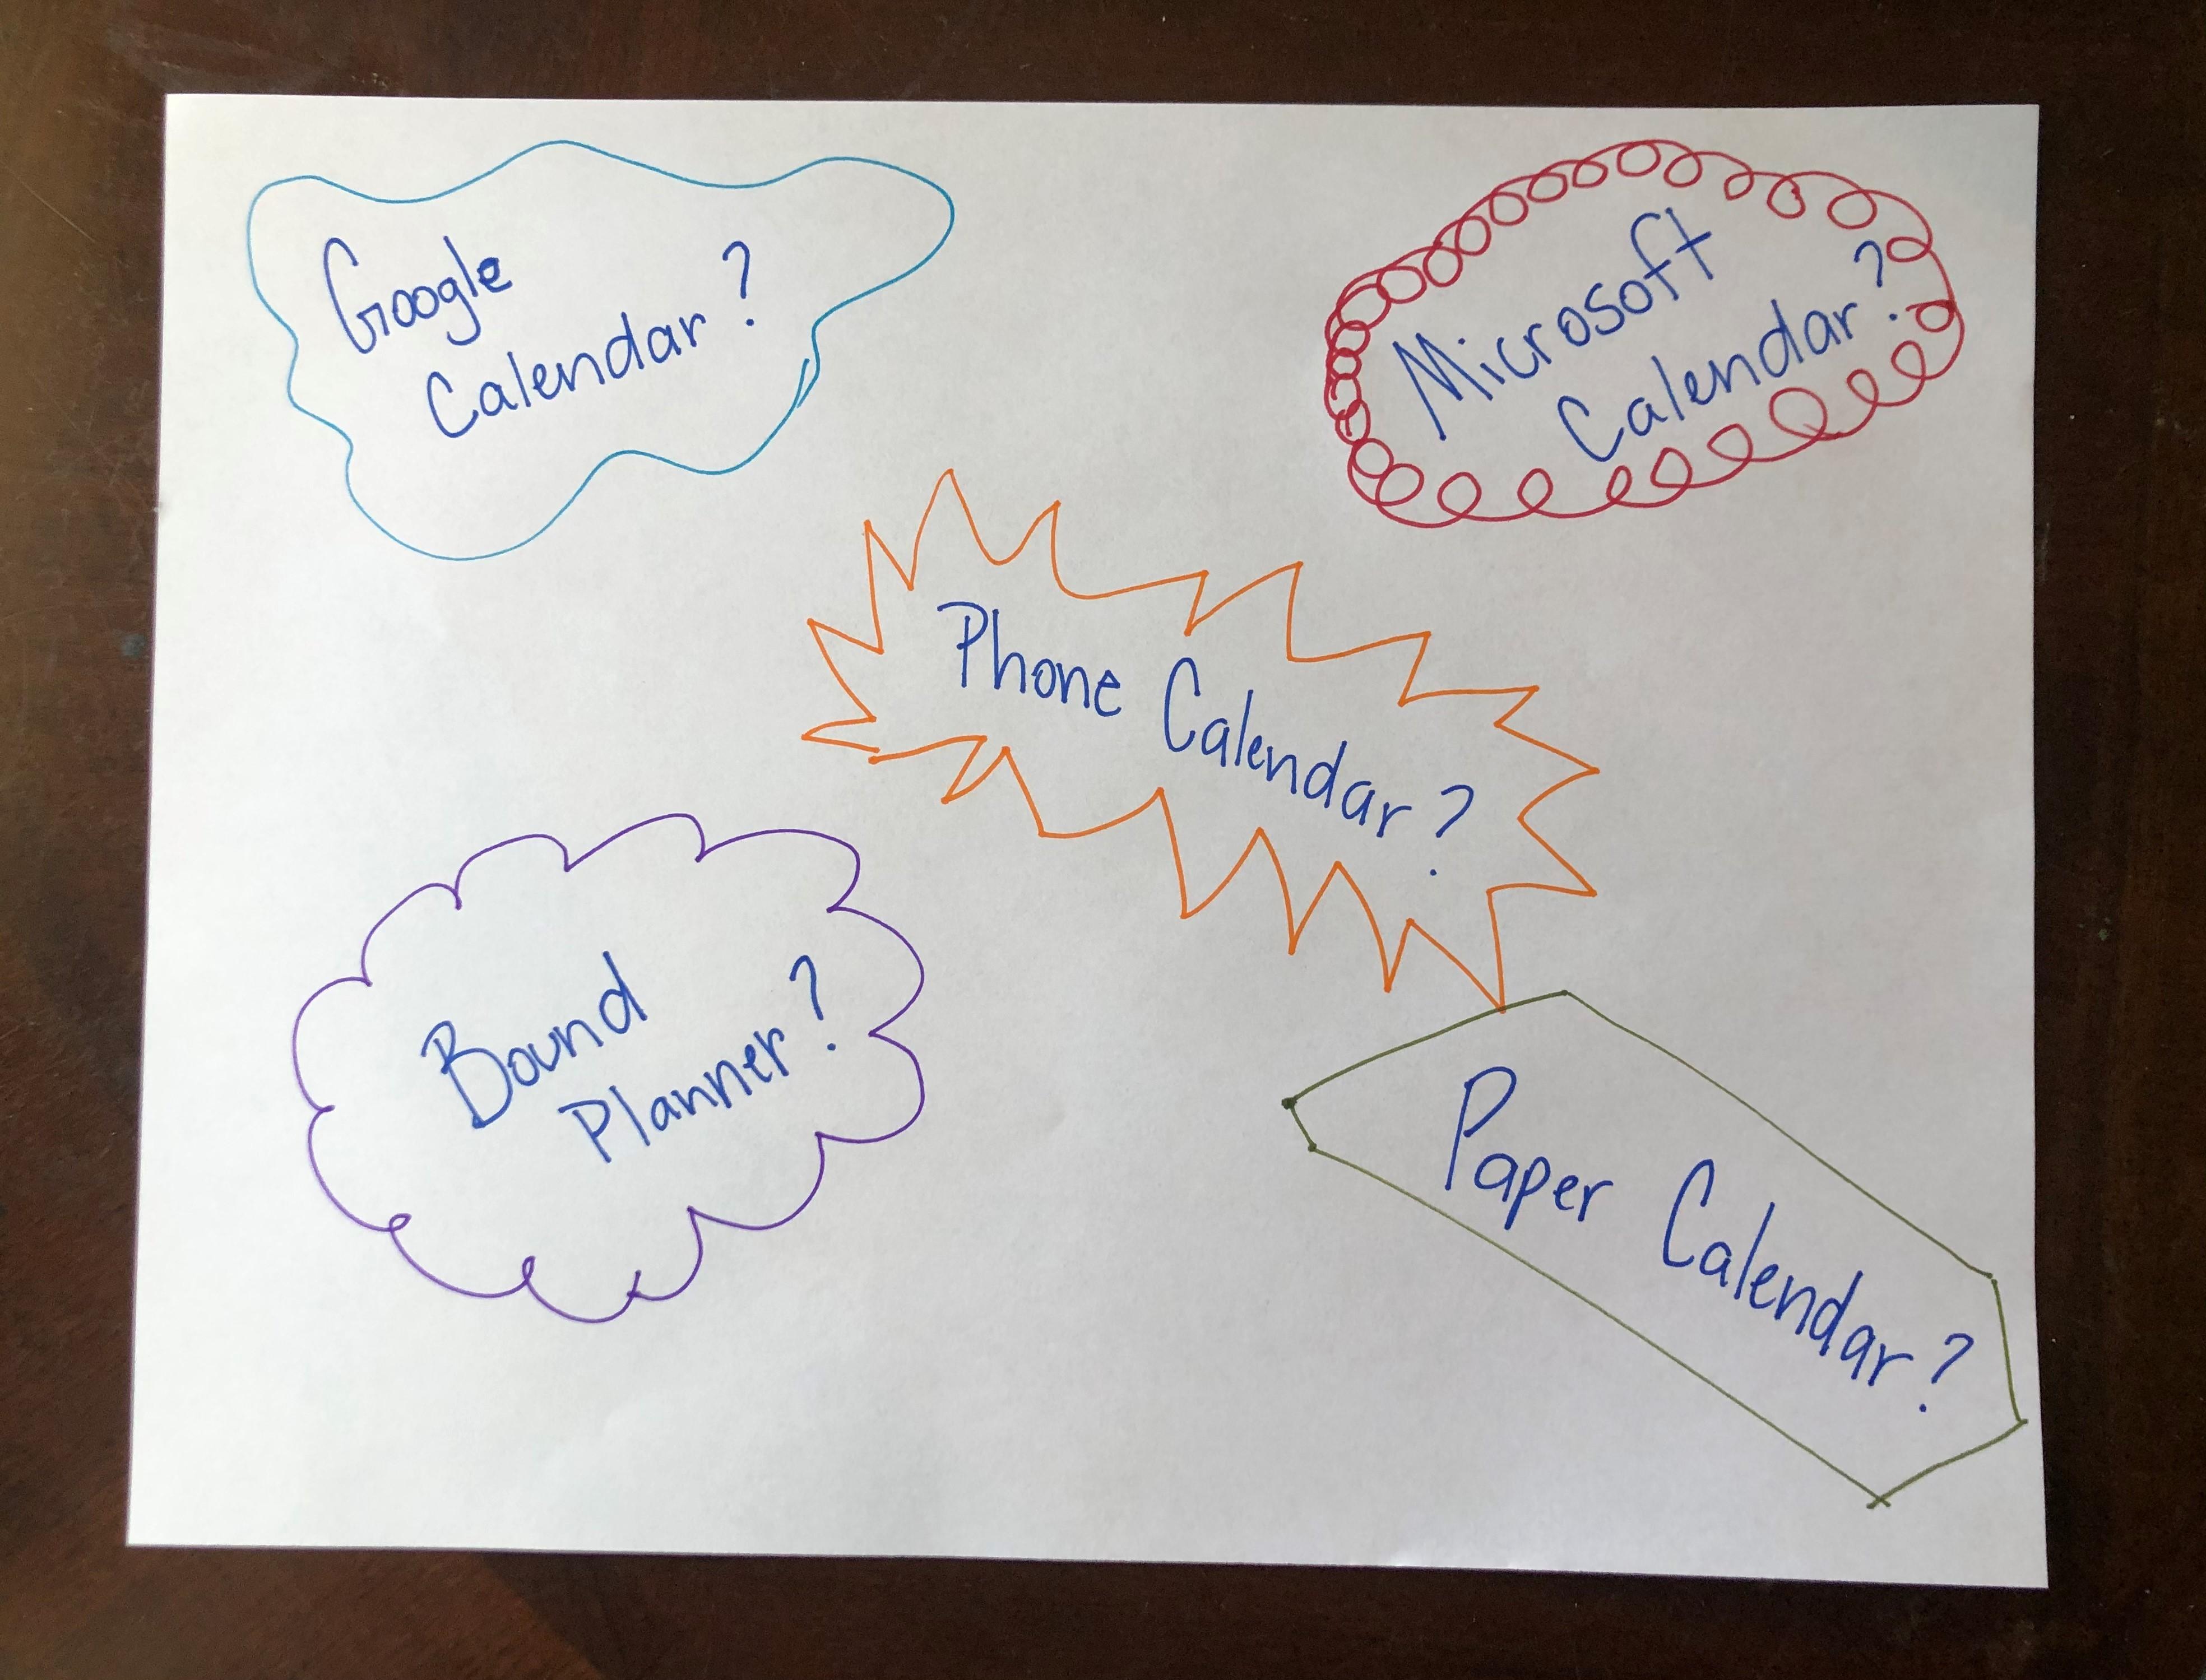 Google
Calendar?
Microsoft
Calendar?
Phone Calendar?
Bound
Planner?
Paper Calendar?